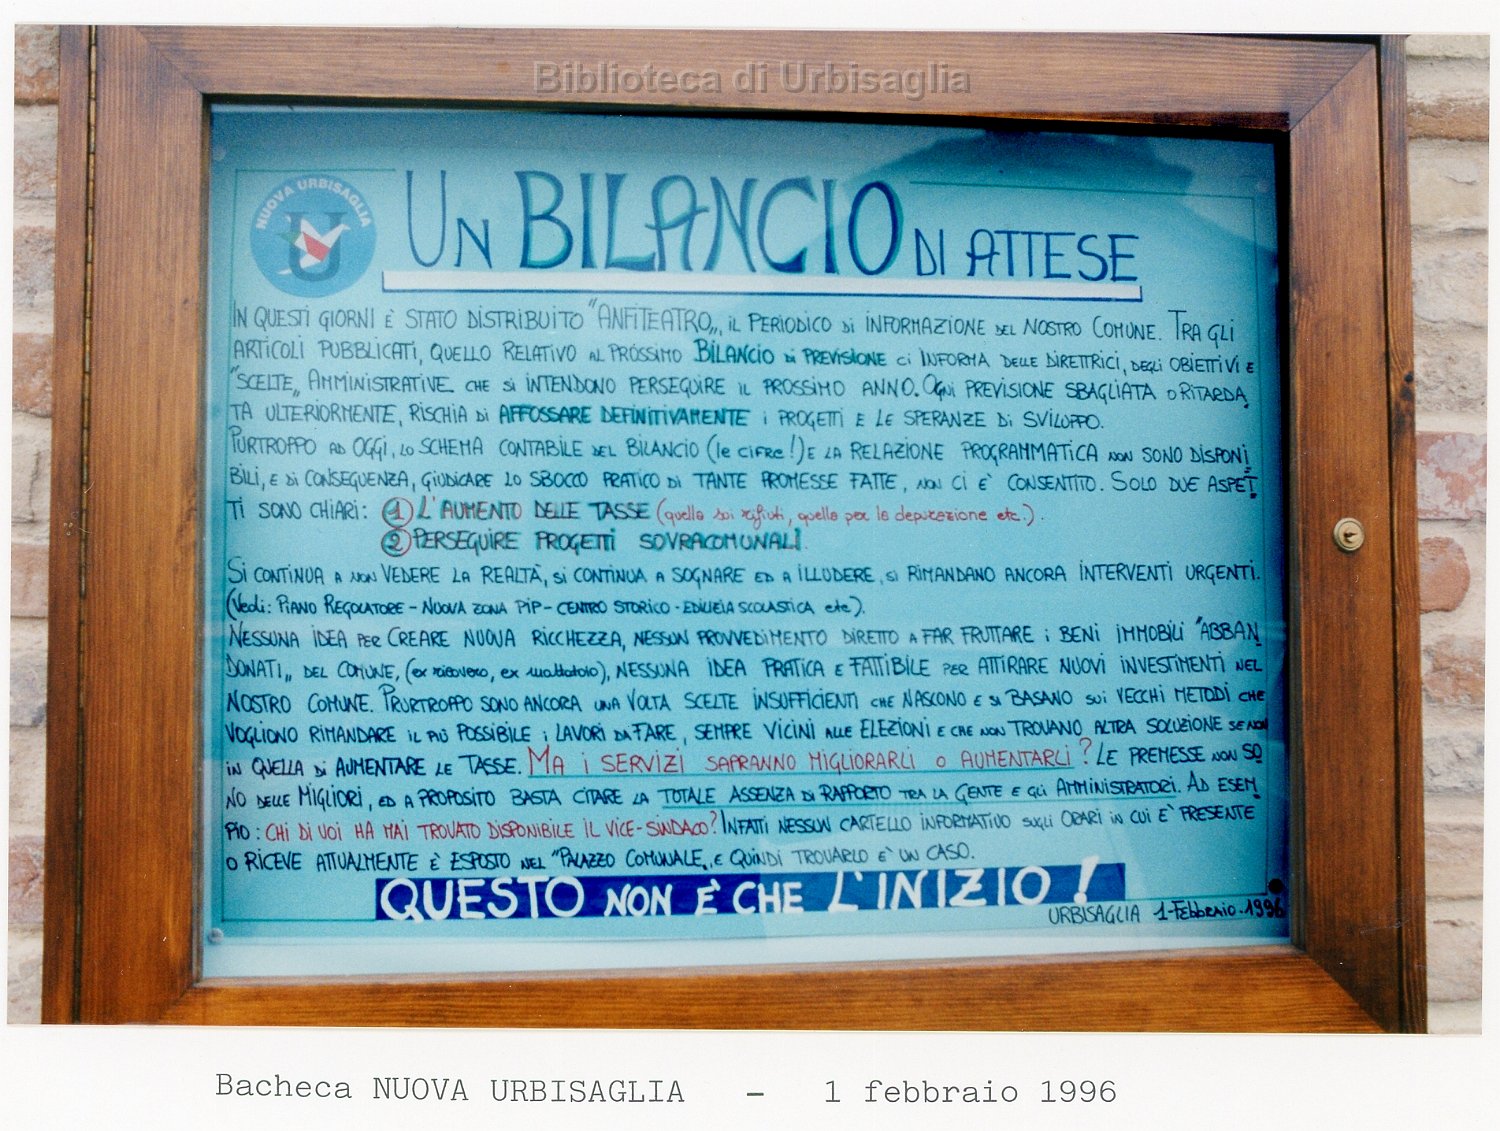 Biblioteca di Urbisaglia
NUOVA URBISAGLIA
U
UN BILANCIO DI ATTESE
IN QUESTI GIORNI È STATO DISTRIBUITO "ANFITEATRO„, IL PERIODICO DI INFORMAZIONE DEL NOSTRO COMUNE. TRA GLI
ARTICOLI PUBBLICATI, QUELLO RELATIVO AL PROSSIMO BILANCIO DI PREVISIONE CI INFORMA DELLE DIRETTRICI, DEGLI OBIETTIVI E
"SCELTE„ AMMINISTRATIVE CHE SI INTENDONO PERSEGUIRE IL PROSSIMO ANNO. OGNI PREVISIONE SBAGLIATA O RITARDA
TA ULTERIORMENTE, RISCHIA DI AFFOSSARE DEFINITIVAMENTE I PROGETTI E LE SPERANZE DI SVILUPPO.
PURTROPPO AD OGGI, LO SCHEMA CONTABILE DEL BILANCIO (le cifre!) E LA RELAZIONE PROGRAMMATICA NON SONO DISPONI
BILI, E DI CONSEGUENZA, GIUDICARE LO SBOCCO PRATICO DI TANTE PROMESSE FATTE, NON CI E' CONSENTITO. SOLO DUE ASPET
TI SONO CHIARI: 1 L'AUMENTO DELLE TASSE (quella sui rifiuti, quella per la depurazione etc.).
2 PERSEGUIRE PROGETTI SOVRACOMUNALI.
SI CONTINUA A NON VEDERE LA REALTÀ, SI CONTINUA A SOGNARE ED A ILLUDERE, SI RIMANDANO ANCORA INTERVENTI URGENTI.
(Vedi: PIANO REGOLATORE - NUOVA ZONA PIP - CENTRO STORICO - EDILIZIA SCOLASTICA etc).
NESSUNA IDEA PER CREARE NUOVA RICCHEZZA, NESSUN PROVVEDIMENTO DIRETTO A FAR FRUTTARE I BENI IMMOBILI "ABBAN
DONATI„ DEL COMUNE, (ex ricovero, ex mattatoio), NESSUNA IDEA PRATICA E FATTIBILE PER ATTIRARE NUOVI INVESTIMENTI NEL
NOSTRO COMUNE. PRURTROPPO SONO ANCORA UNA VOLTA SCELTE INSUFFICIENTI CHE NASCONO E SI BASANO SUI VECCHI METODI CHE
VOGLIONO RIMANDARE IL PIÙ POSSIBILE I LAVORI DA FARE, SEMPRE VICINI ALLE ELEZIONI E CHE NON TROVANO ALTRA SOLUZIONE SE NON
IN QUELLA DI AUMENTARE LE TASSE. MA I SERVIZI SAPRANNO MIGLIORARLI O AUMENTARLI? LE PREMESSE NON SO
NO DELLE MIGLIORI, ED A PROPOSITO BASTA CITARE LA TOTALE ASSENZA DI RAPPORTO TRA LA GENTE E GLI AMMINISTRATORI. AD ESEM
PIO: CHI DI VOI HA MAI TROVATO DISPONIBILE IL VICE-SINDACO? INFATTI NESSUN CARTELLO INFORMATIVO SUGLI ORARI IN CUI E' PRESENTE
O RICEVE ATTUALMENTE È ESPOSTO NEL "PALAZZO COMUNALE„ E QUINDI TROVARLO E' UN CASO.
QUESTO NON È CHE L'INIZIO!
URBISAGLIA 1-Febbraio-1996
Bacheca NUOVA URBISAGLIA - 1 febbraio 1996